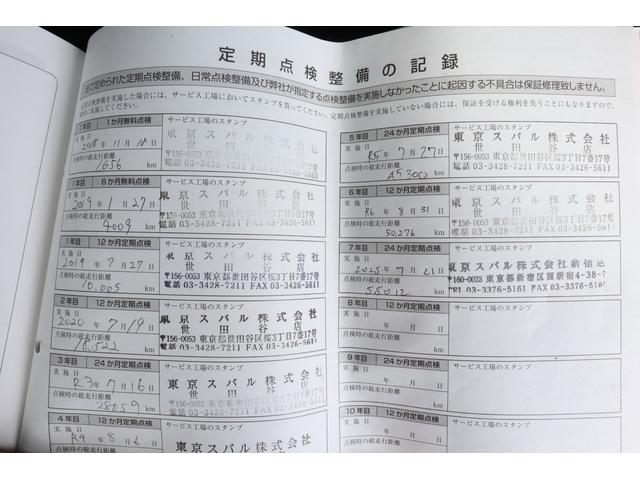 定期点検整備の記録
法で定められた定期点検整備、日常点検整備及び弊社が指定する点検整備を実施しなかったことに起因する不具合は保証修理致しません。
点検整備を実施した場合には、サービス工場においてスタンプを貰ってください。定期点検整備を実施していない場合には、保証を受ける権利を失うことにもなりますので、
実施してください。
1か月無料点検 サービス工場のスタンプ
実施日 2018年11月10日
東京スバル株式会社
世田谷店
点検時の総走行距離
〒156-0053 東京都世田谷区桜3丁目7番17号
1656 km
電話03-3428-7211 FAX 03-3426-5611
1年目 6か月無料点検 サービス工場のスタンプ
実施日 2019年1月27日
東京スバル株式会社
世田谷店
点検時の総走行距離
〒156-0053 東京都世田谷区桜3丁目7番17号
4009 km
電話03-3428-7211 FAX 03-3426-5611
1年目 12か月定期点検 サービス工場のスタンプ
実施日 2019年7月27日
東京スバル株式会社
世田谷店
点検時の総走行距離
〒156-0053 東京都世田谷区桜3丁目7番17号
10,005 km
電話03-3428-7211 FAX 03-3426-5611
2年目 12か月定期点検 サービス工場のスタンプ
実施日 2020年7月19日
東京スバル株式会社
世田谷店
点検時の総走行距離
〒156-0053 東京都世田谷区桜3丁目7番17号
km
電話03-3428-7211 FAX 03-3426-5611
3年目 24か月定期点検 サービス工場のスタンプ
実施日 R3年7月16日
東京スバル株式会社
世田谷店
点検時の総走行距離
〒156-0053 東京都世田谷区桜3丁目7番17号
28059 km
電話03-3428-7211 FAX 03-3426-5611
4年目 12か月定期点検 サービス工場のスタンプ
実施日 年8月6日
東京スバル株式会社
点検時の総走行距離
5年目 24か月定期点検 サービス工場のスタンプ
実施日 R5年7月27日
東京スバル株式会社
世田谷店
点検時の総走行距離
〒156-0053 東京都世田谷区桜3丁目7番17号
km
電話03-3428-7211 FAX 03-3426-5611
6年目 12か月定期点検 サービス工場のスタンプ
実施日 R6年8月31日
東京スバル株式会社
世田谷店
点検時の総走行距離
〒156-0053 東京都世田谷区桜3丁目7番17号
50,276 km
電話03-3428-7211 FAX 03-3426-5611
7年目 24か月定期点検 サービス工場のスタンプ
実施日 2025年7月21日
東京スバル株式会社新宿店
点検時の総走行距離
〒160-0023 東京都新宿区西新宿4-38-7
55012 km
03-3376-5161
8年目 12か月定期点検 サービス工場のスタンプ
実施日 年 月 日
点検時の総走行距離
km
9年目 24か月定期点検 サービス工場のスタンプ
実施日 年 月 日
点検時の総走行距離
km
10年目 12か月定期点検 サービス工場のスタンプ
実施日 年 月 日
点検時の総走行距離